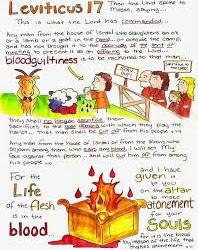 Leviticus 17
Then the Lord spoke to
Moses, saying...
This is what the Lord has commanded...
Any man from the house of Israel who slaughters an ox
or a lamb or a goat in the camp... or outside the camp,
and has not brought it to the doorway of the tent of
meeting to present it as an offering to the Lord...
bloodguiltiness is to be reckoned to that man...
they shall no longer sacrifice their
sacrifices to the goat demons with which they play the
harlot.
shall be cut off from
his people
Any man from the house of Israel or from the aliens who
sojourn among them, who eats any blood, I will set My
face against that person... and will cut him off from among
his people...
For the
Life
of the flesh
is in the
blood...
and I have
given it
to you
on the altar
to make
atonement
for your
Souls
for it is the blood
by reason of the life that
makes atonement